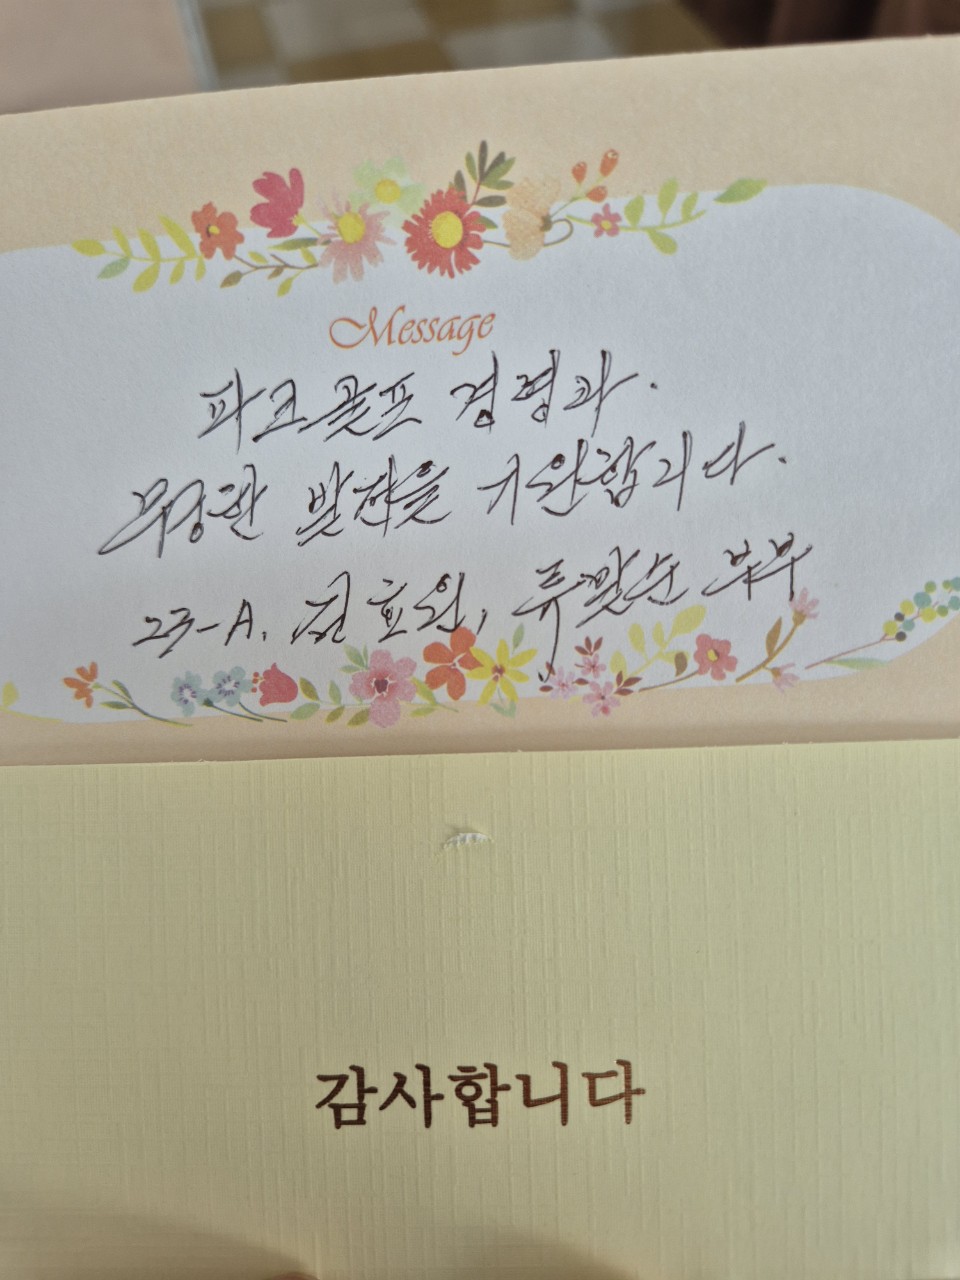 Message
파크골프 경영과.
무궁한 발전을 기원합니다.
23-A. 효원, 부부
감사합니다